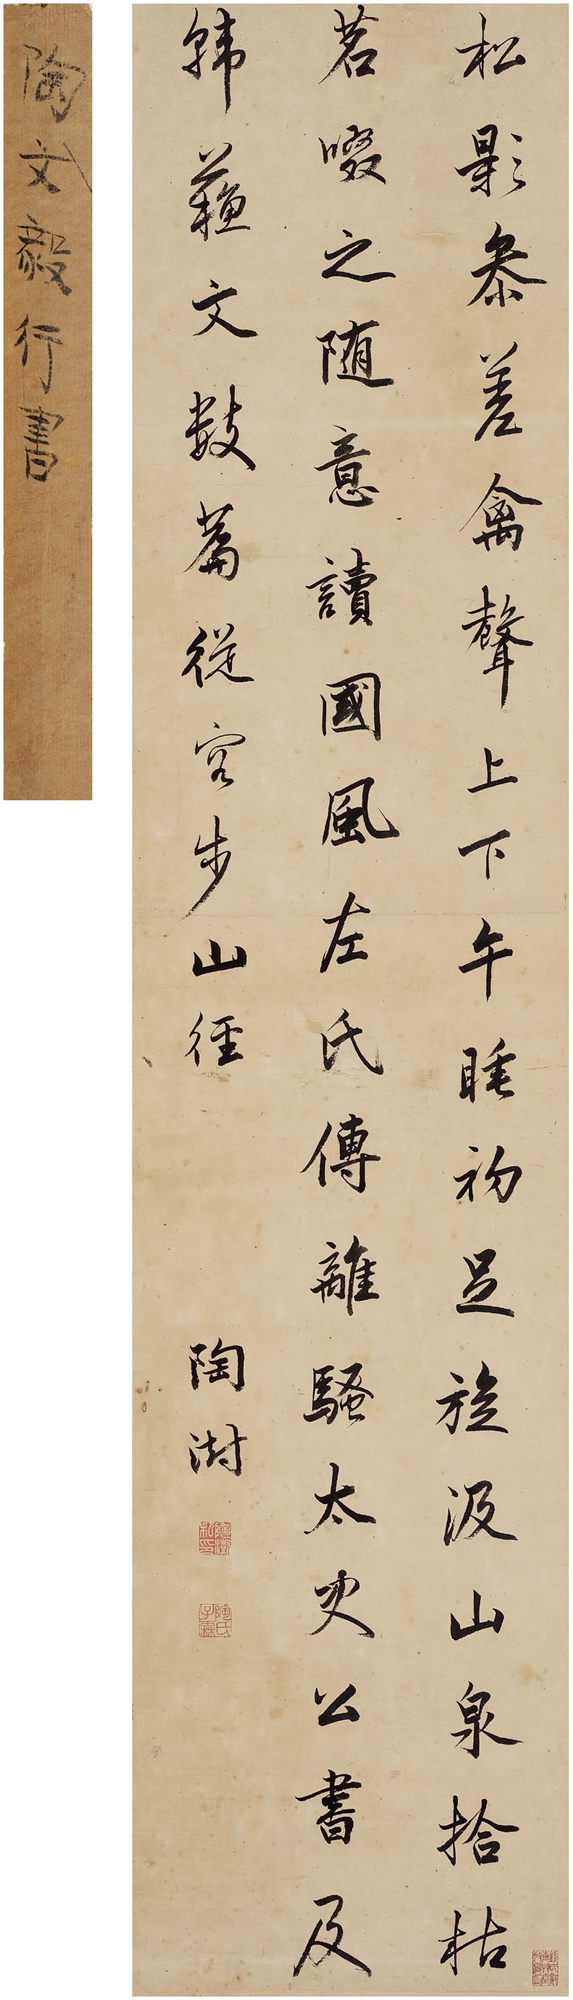 松影參差禽聲上下午睡初足旋汲山泉拾枯
茗啜之随意讀國風左氏傳離騷太史公書及
韓蘇文數篇從容步山徑
陶澍
陶澍私印
陶氏子霖
陶文毅行書